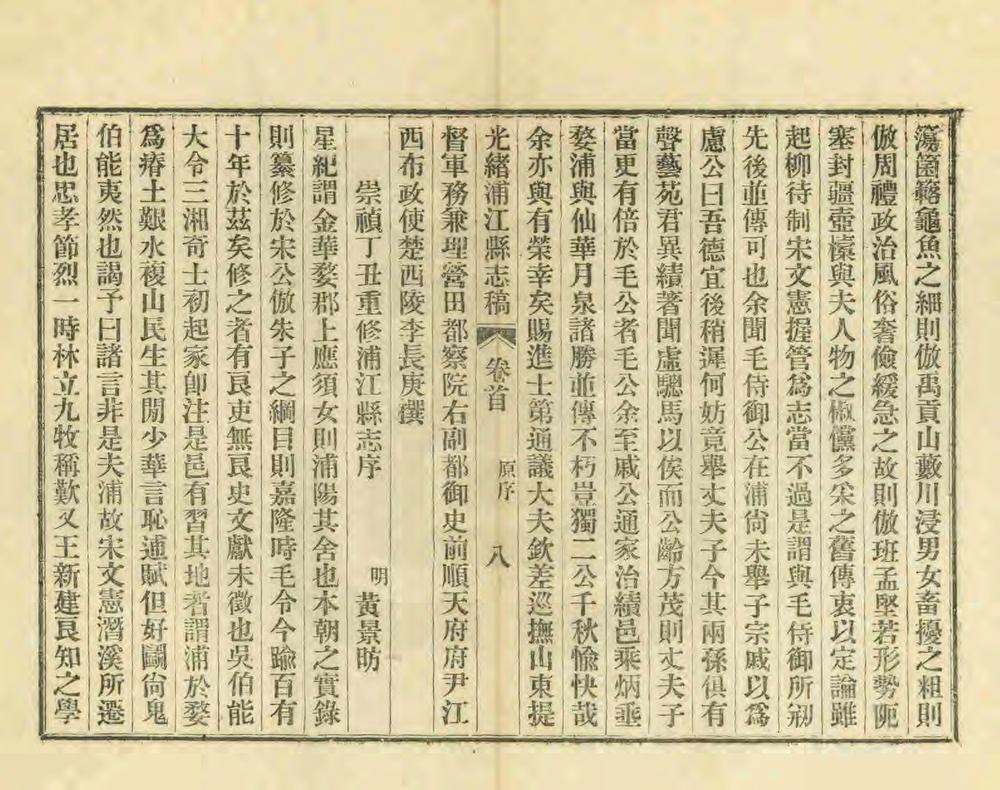 蕩箘簬龜魚之細則倣禹貢山藪川浸男女畜擾之粗則
倣周禮政治風俗奢儉緩急之故則倣班孟堅若形勢阨
塞封疆壼榡與夫人物之俶儻多釆之舊傳衷以定論雖
起柳待制宋文憲握管爲志當不過是謂與毛侍御所刱
先後並傳可也余聞毛侍御公在浦尙未舉子宗戚以爲
慮公曰吾德宜後稍遲何妨竟舉丈夫子今其兩孫俱有
聲藝苑君異績著聞虛驄馬以俟而公齡方茂則丈夫子
當更有倍於毛公者毛公余至戚公通家治績邑乘炳垂
婺浦與仙華月泉諸勝並傳不朽豈獨二公千秋愉快哉
余亦與有榮幸矣賜進士第通議大夫欽差巡撫山東提
光緒浦江縣志稿 卷首 原序 八
督軍務兼理營田都察院右副都御史前順天府府尹江
西布政使楚西陵李長庚撰
崇禎丁丑重修浦江縣志序 明 黃景昉
星紀謂金華婺郡上應須女則浦陽其舍也本朝之實錄
則纂修於宋公倣朱子之綱目則嘉隆時毛令今踰百有
十年於茲矣修之者有良吏無良史文獻未徵也吳伯能
大令三湘奇士初起家卽注是邑有習其地者謂浦於婺
爲瘠土艱水複山民生其閒少華言恥逋賦但好鬭尙鬼
伯能夷然也謁予曰諸言非是夫浦故宋文憲潛溪所遷
居也忠孝節烈一時林立九牧稱歎又王新建良知之學